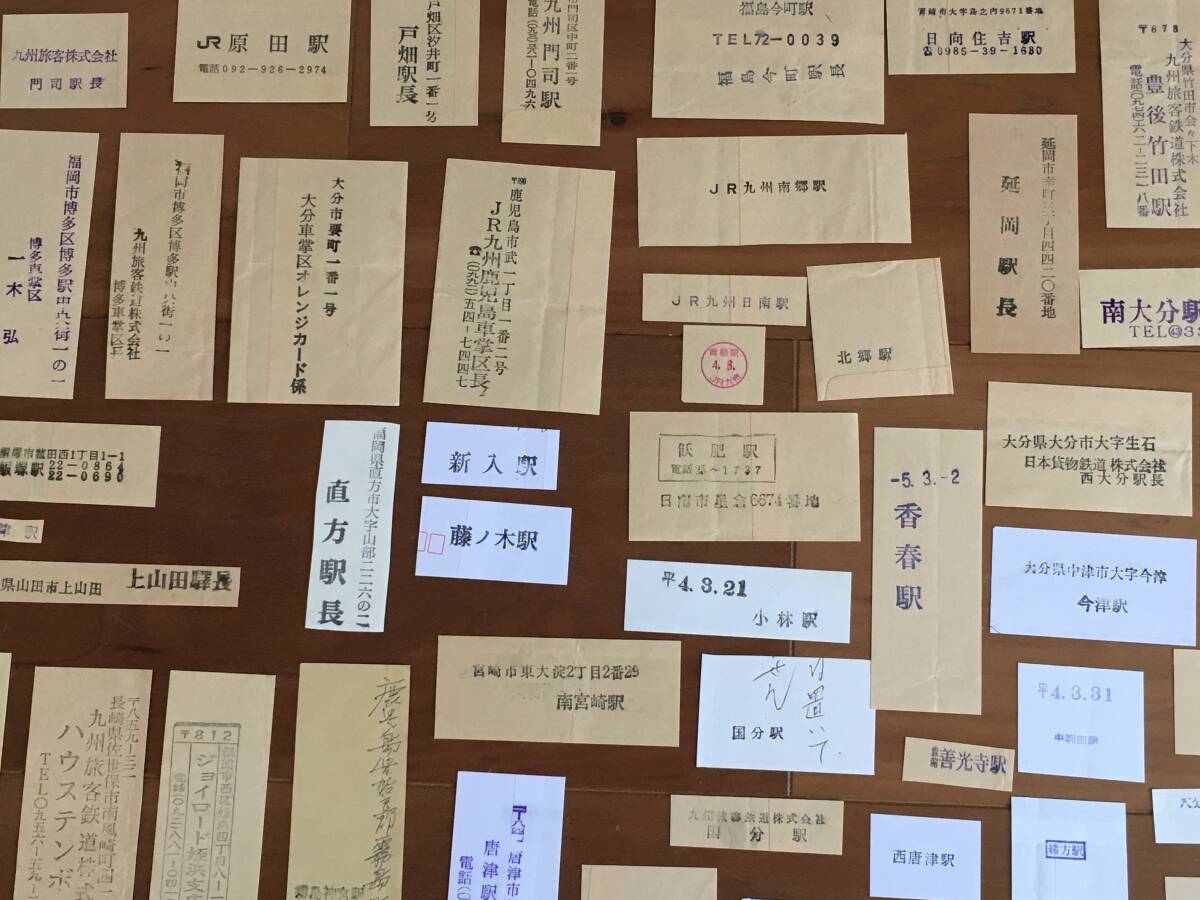 九州旅客株式会社
門司駅長
JR 原田駅
電話 092-926-2974
戸畑区汐井町一番一号
戸畑駅長
門司区中町二番一号
九州門司駅
福島今町駅
TEL72-0039
福島今町駅長
宮崎市大字島之内9671番地
日向住吉駅
☎0985-39-1680
〒878
大分県竹田市会々下木
九州旅客鉄道株式会社
豊後竹田駅
電話(〇九七四)六二-二三一八番
福岡市博多区博多駅中央街一の一
博多車掌区
一木弘
福岡市博多区博多駅中央街一の一
九州旅客鉄道株式会社
博多車掌区
大分市要町一番一号
大分車掌区オレンジカード係
〒890
鹿児島市武一丁目一番二号
JR九州鹿児島車掌区長
☎(〇九九二)五四-七四四七
JR九州南郷駅
延岡市幸町三丁目四四二〇番地
延岡駅長
JR九州日南駅
青島駅
4.3.
JR九州
北郷駅
南大分駅
TEL㊸33
飯塚市菰田西1丁目1-1
飯塚駅
22-0864
22-0690
福岡県直方市大字山部二二六の二
直方駅長
新入駅
藤ノ木駅
飫肥駅
日南市星倉6674番地
-5.3.-2
香春駅
大分県大分市大字生石
日本貨物鉄道株式会社
西大分駅長
県山田市上山田
上山田驛長
平4.3.21
小林駅
大分県中津市大字今津
今津駅
〒八五九-三二
長崎県佐世保市南風崎町四
九州旅客鉄道株式
ハウステンボ
TEL〇九五六-五九-
〒812
ジョイロード姪浜支店
宮崎市東大淀2丁目2番29
南宮崎駅
置いて
せん
国分駅
平4.3.31
中判田駅
豊前善光寺駅
唐津市
唐津駅
電話
九州旅客鉄道株式会社
国分駅
西唐津駅
緒方駅
霧島神宮駅